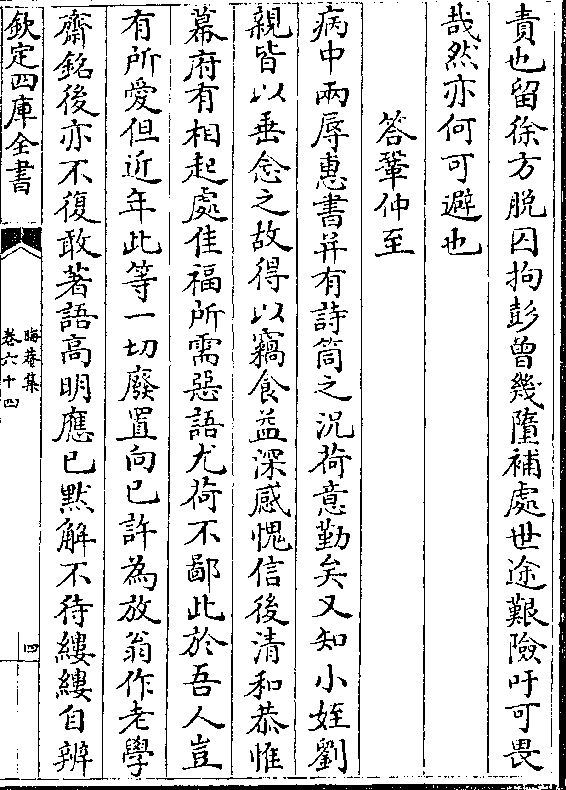 責也留徐方脱囚拘彭曾幾墮補處世途艱險吁可畏
哉然亦何可避也
答鞏仲至
病中兩辱惠書并有詩筒之況荷意勤矣又知小姪劉
親皆以垂念之故得以竊食益深感愧信後清和恭惟
幕府有相起處佳福所需惡語尤荷不鄙此於吾人豈
有所愛但近年此等一切廢置向已許為放翁作老學
齋銘後亦不復敢著語高明應已黙解不待縷縷自辨
欽定四庫全書
晦菴集
卷六十四
四